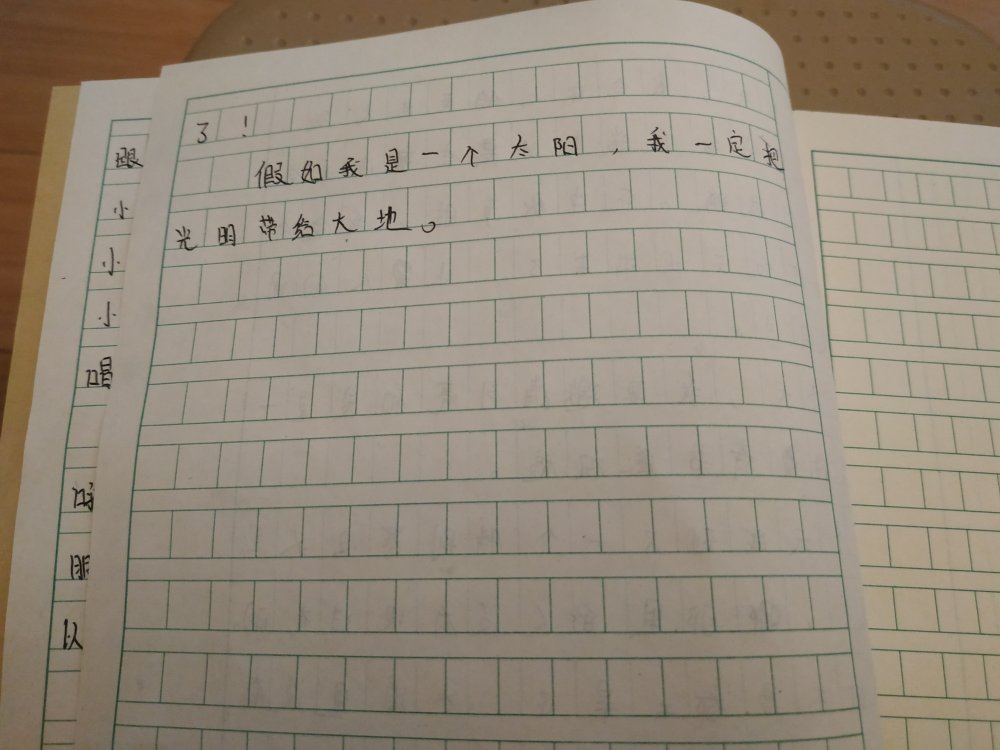 了！
假如我是一个太阳，我一定把
光明带给大地。
跟
小
小
小
唱
以